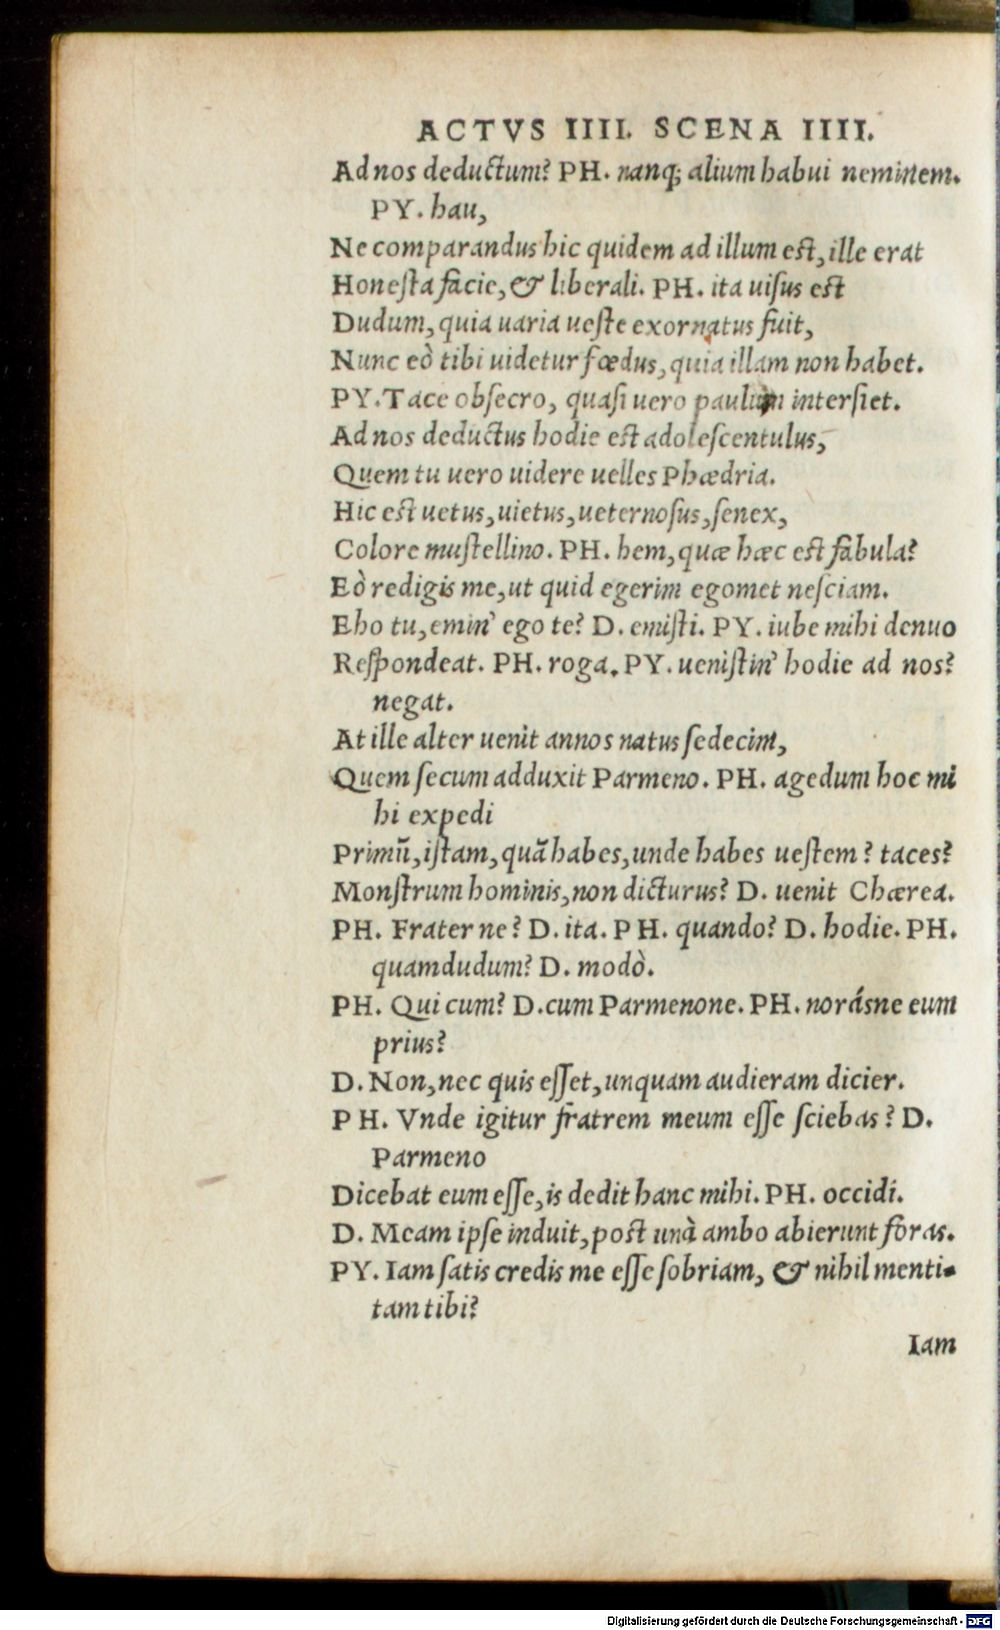 ACTVS IIII. SCENA IIII.
Ad nos deductum? PH. nanq; alium habui neminem.
PY. hau,
Ne comparandus hic quidem ad illum est, ille erat
Honesta facie, & liberali. PH. ita uisus est
Dudum, quia uaria ueste exornatus fuit,
Nunc eò tibi uidetur fœdus, quia illam non habet.
PY. Tace obsecro, quasi uero paulum intersiet.
Ad nos deductus hodie est adolescentulus,
Quem tu uero uidere uelles Phædria.
Hic est uetus, uietus, ueternosus, senex,
Colore mustellino. PH. hem, quæ hæc est fabula?
Eò redigis me, ut quid egerim egomet nesciam.
Eho tu, emin' ego te? D. emisti. PY. iube mihi denuo
Respondeat. PH. roga. PY. uenistin' hodie ad nos?
negat.
At ille alter uenit annos natus sedecim,
Quem secum adduxit Parmeno. PH. agedum hoc mi
hi expedi
Primũ, istam, quã habes, unde habes uestem? taces?
Monstrum hominis, non dicturus? D. uenit Chærea.
PH. Frater ne? D. ita. PH. quando? D. hodie. PH.
quamdudum? D. modò.
PH. Qui cum? D. cum Parmenone. PH. norásne eum
prius?
D. Non, nec quis esset, unquam audieram dicier.
PH. Vnde igitur fratrem meum esse sciebas? D.
Parmeno
Dicebat eum esse, is dedit hanc mihi. PH. occidi.
D. Meam ipse induit, post unà ambo abierunt foras.
PY. Iam satis credis me esse sobriam, & nihil menti-
tam tibi?
Iam
Digitalisierung gefördert durch die Deutsche Forschungsgemeinschaft - DFG